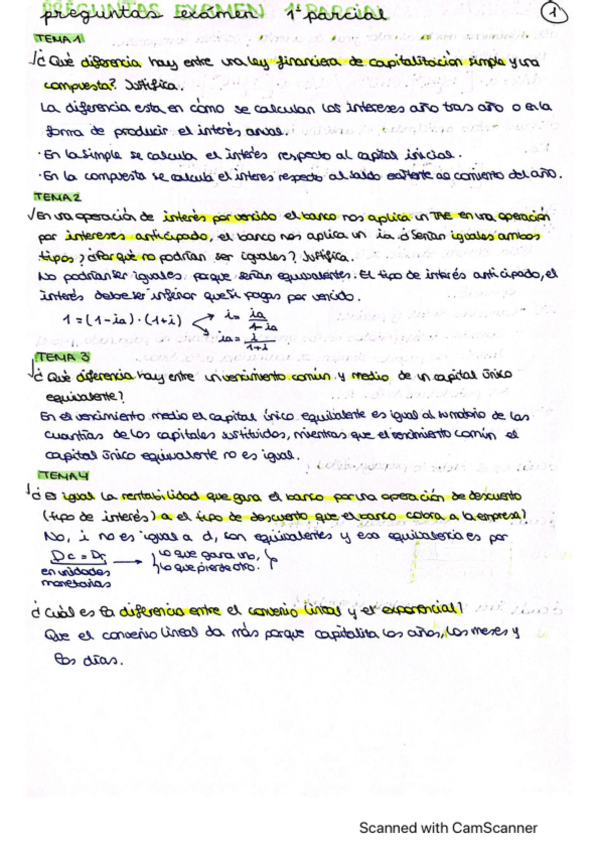 preguntas examen 1º parcial
1
TEMA 1
¿Qué diferencia hay entre una ley financiera de capitalización simple y una
compuesta? Justifica.
La diferencia esta en cómo se calculan los intereses año tras año o en la
forma de producir el interés anual.
· En la simple se calcula el interés respecto al capital inicial.
· En la compuesta se calcula el interes respecto al saldo existente de comienzo del año.
TEMA 2
En una operación de interés por vencido el banco nos aplica un TAE en una operación
por intereses anticipado, el banco nos aplica un ia ¿Serían iguales ambos
tipos? ¿Por qué no podrían ser iguales? Justifica.
No podrían ser iguales porque serían equivalentes. El tipo de interés anticipado, el
interés debe ser inferior que si pagas por vencido.
1 = (1-ia) · (1+i)
i = ia / 1-ia
ia = i / 1+i
TEMA 3
¿Qué diferencia hay entre un vencimiento común y medio de un capital único
equivalente?
En el vencimiento medio el capital único equivalente es igual al sumatorio de las
cuantías de los capitales sustituidos, mientras que el vencimiento común el
capital único equivalente no es igual.
TEMA 4
¿Es igual la rentabilidad que gana el banco por una operación de descuento
(tipo de interés) a el tipo de descuento que el banco cobra a la empresa?
No, i no es igual a d, son equivalentes y esa equivalencia es por
Dc = Dr
en unidades
monetarias
lo que gana uno,
lo que pierde otro.
¿Cuál es la diferencia entre el convenio lineal y el exponencial?
Que el convenio lineal da más porque capitaliza los años, los meses y
los días.
Scanned with CamScanner